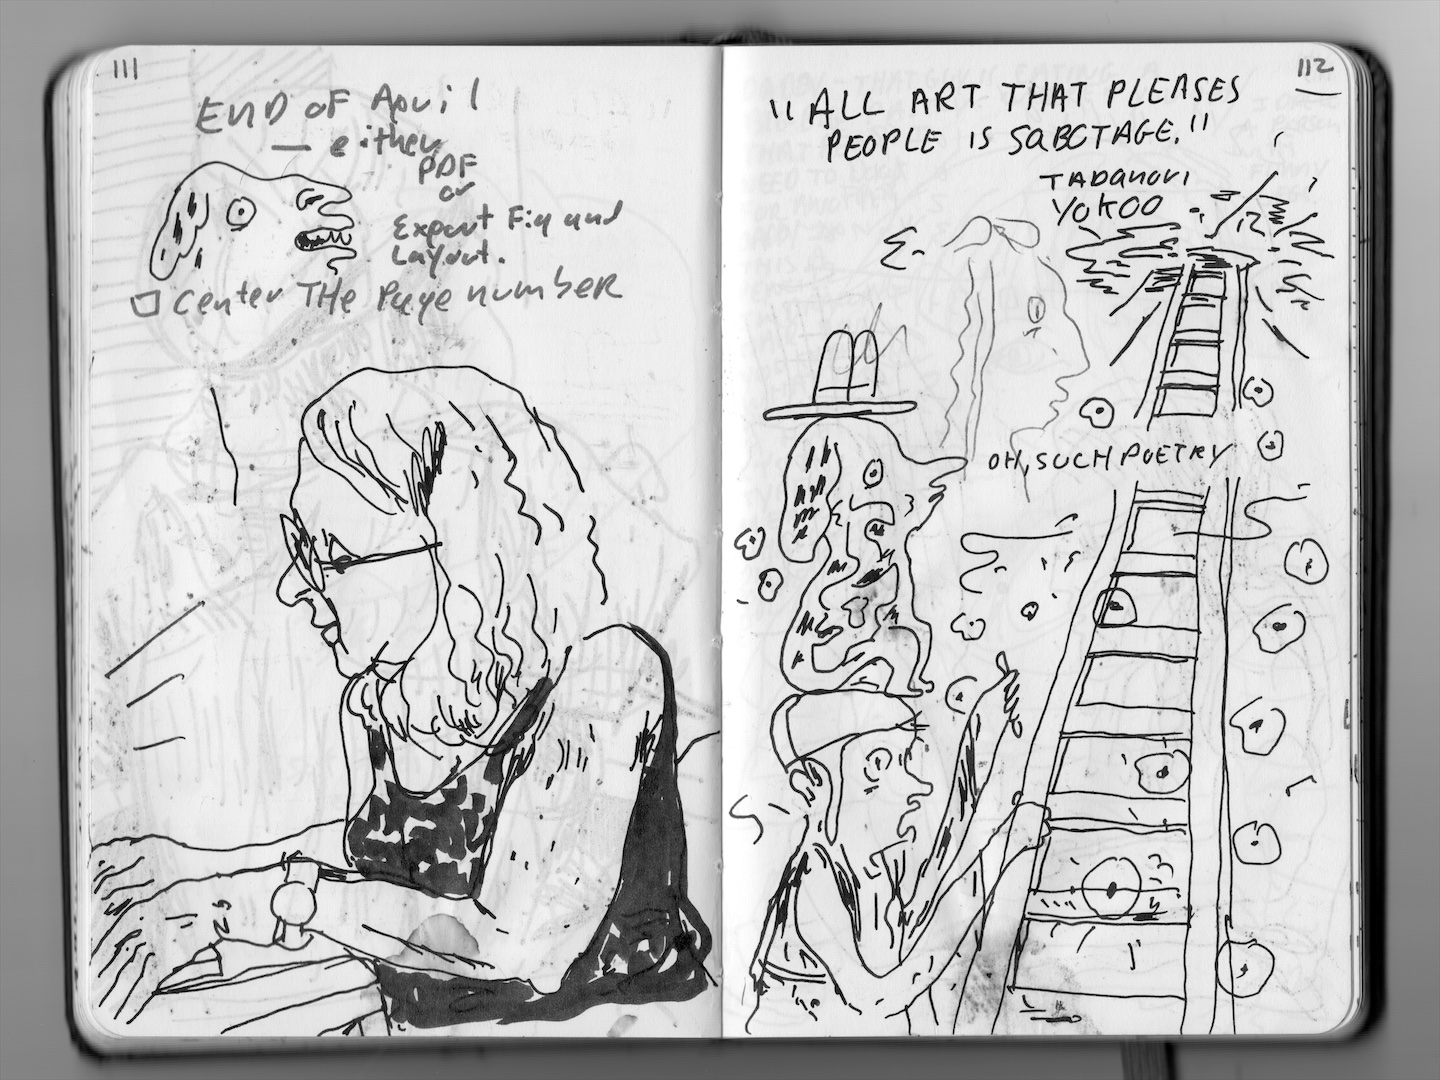 111
END OF April
— either
PDF
or
Export Fig and
Layout.
Center THe Page number
112
"ALL ART THAT PLEASES
PEOPLE IS SABOTAGE."
TADANORI
YOKOO
OH, SUCH POETRY